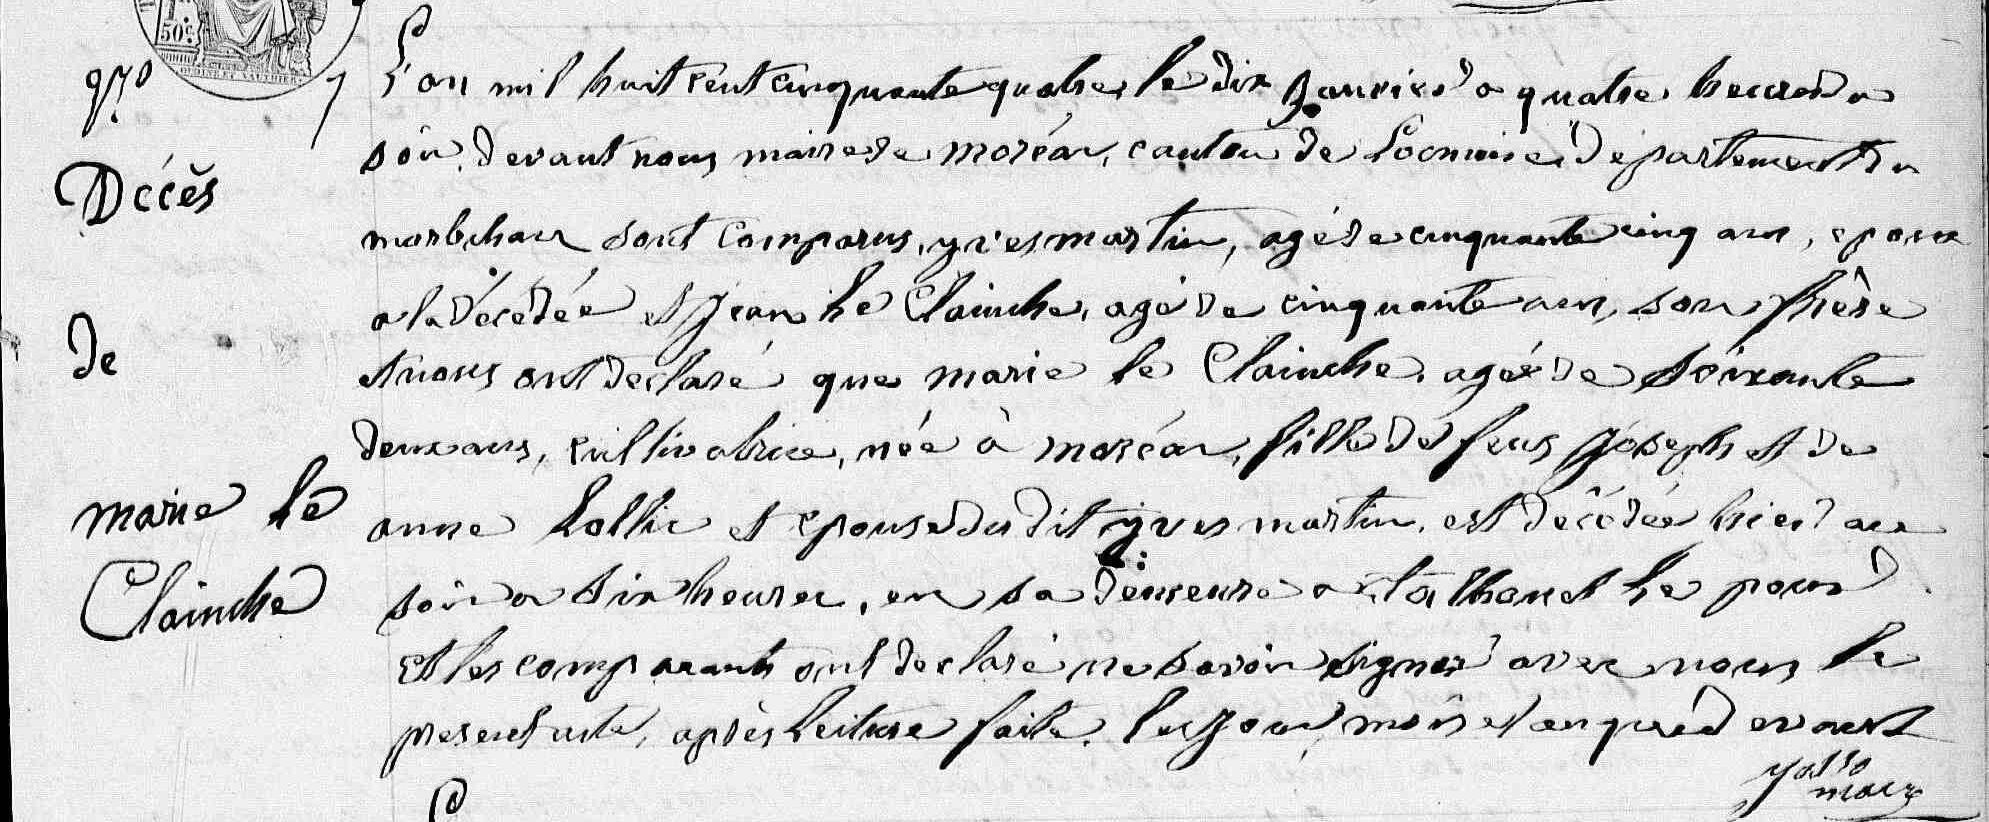 50c
n° 7
Décès
de
marie Le
Clainche
L'an mil huit cent cinquante quatre, le dix Janvier a quatre heures du
soir, devant nous maire de moréac, canton de Locminé, Département du
morbihan sont comparus, yves martin, agé de cinquante cinq ans, epoux
a la décédée et Jean Le Clainche, agé de cinquante ans, son frère
et nous ont declaré que marie le Clainche, agée de soixante
deux ans, cultivatrice, née à moréac, fille de feus Joseph et de
anne Lollic et epouse du dit yves martin, est décédée hier au
soir a six heures, en sa demeure a
et les comparants ont declaré ne savoir signer avec nous le
present acte, après lecture faite, les jour, mois et an que devant
maire